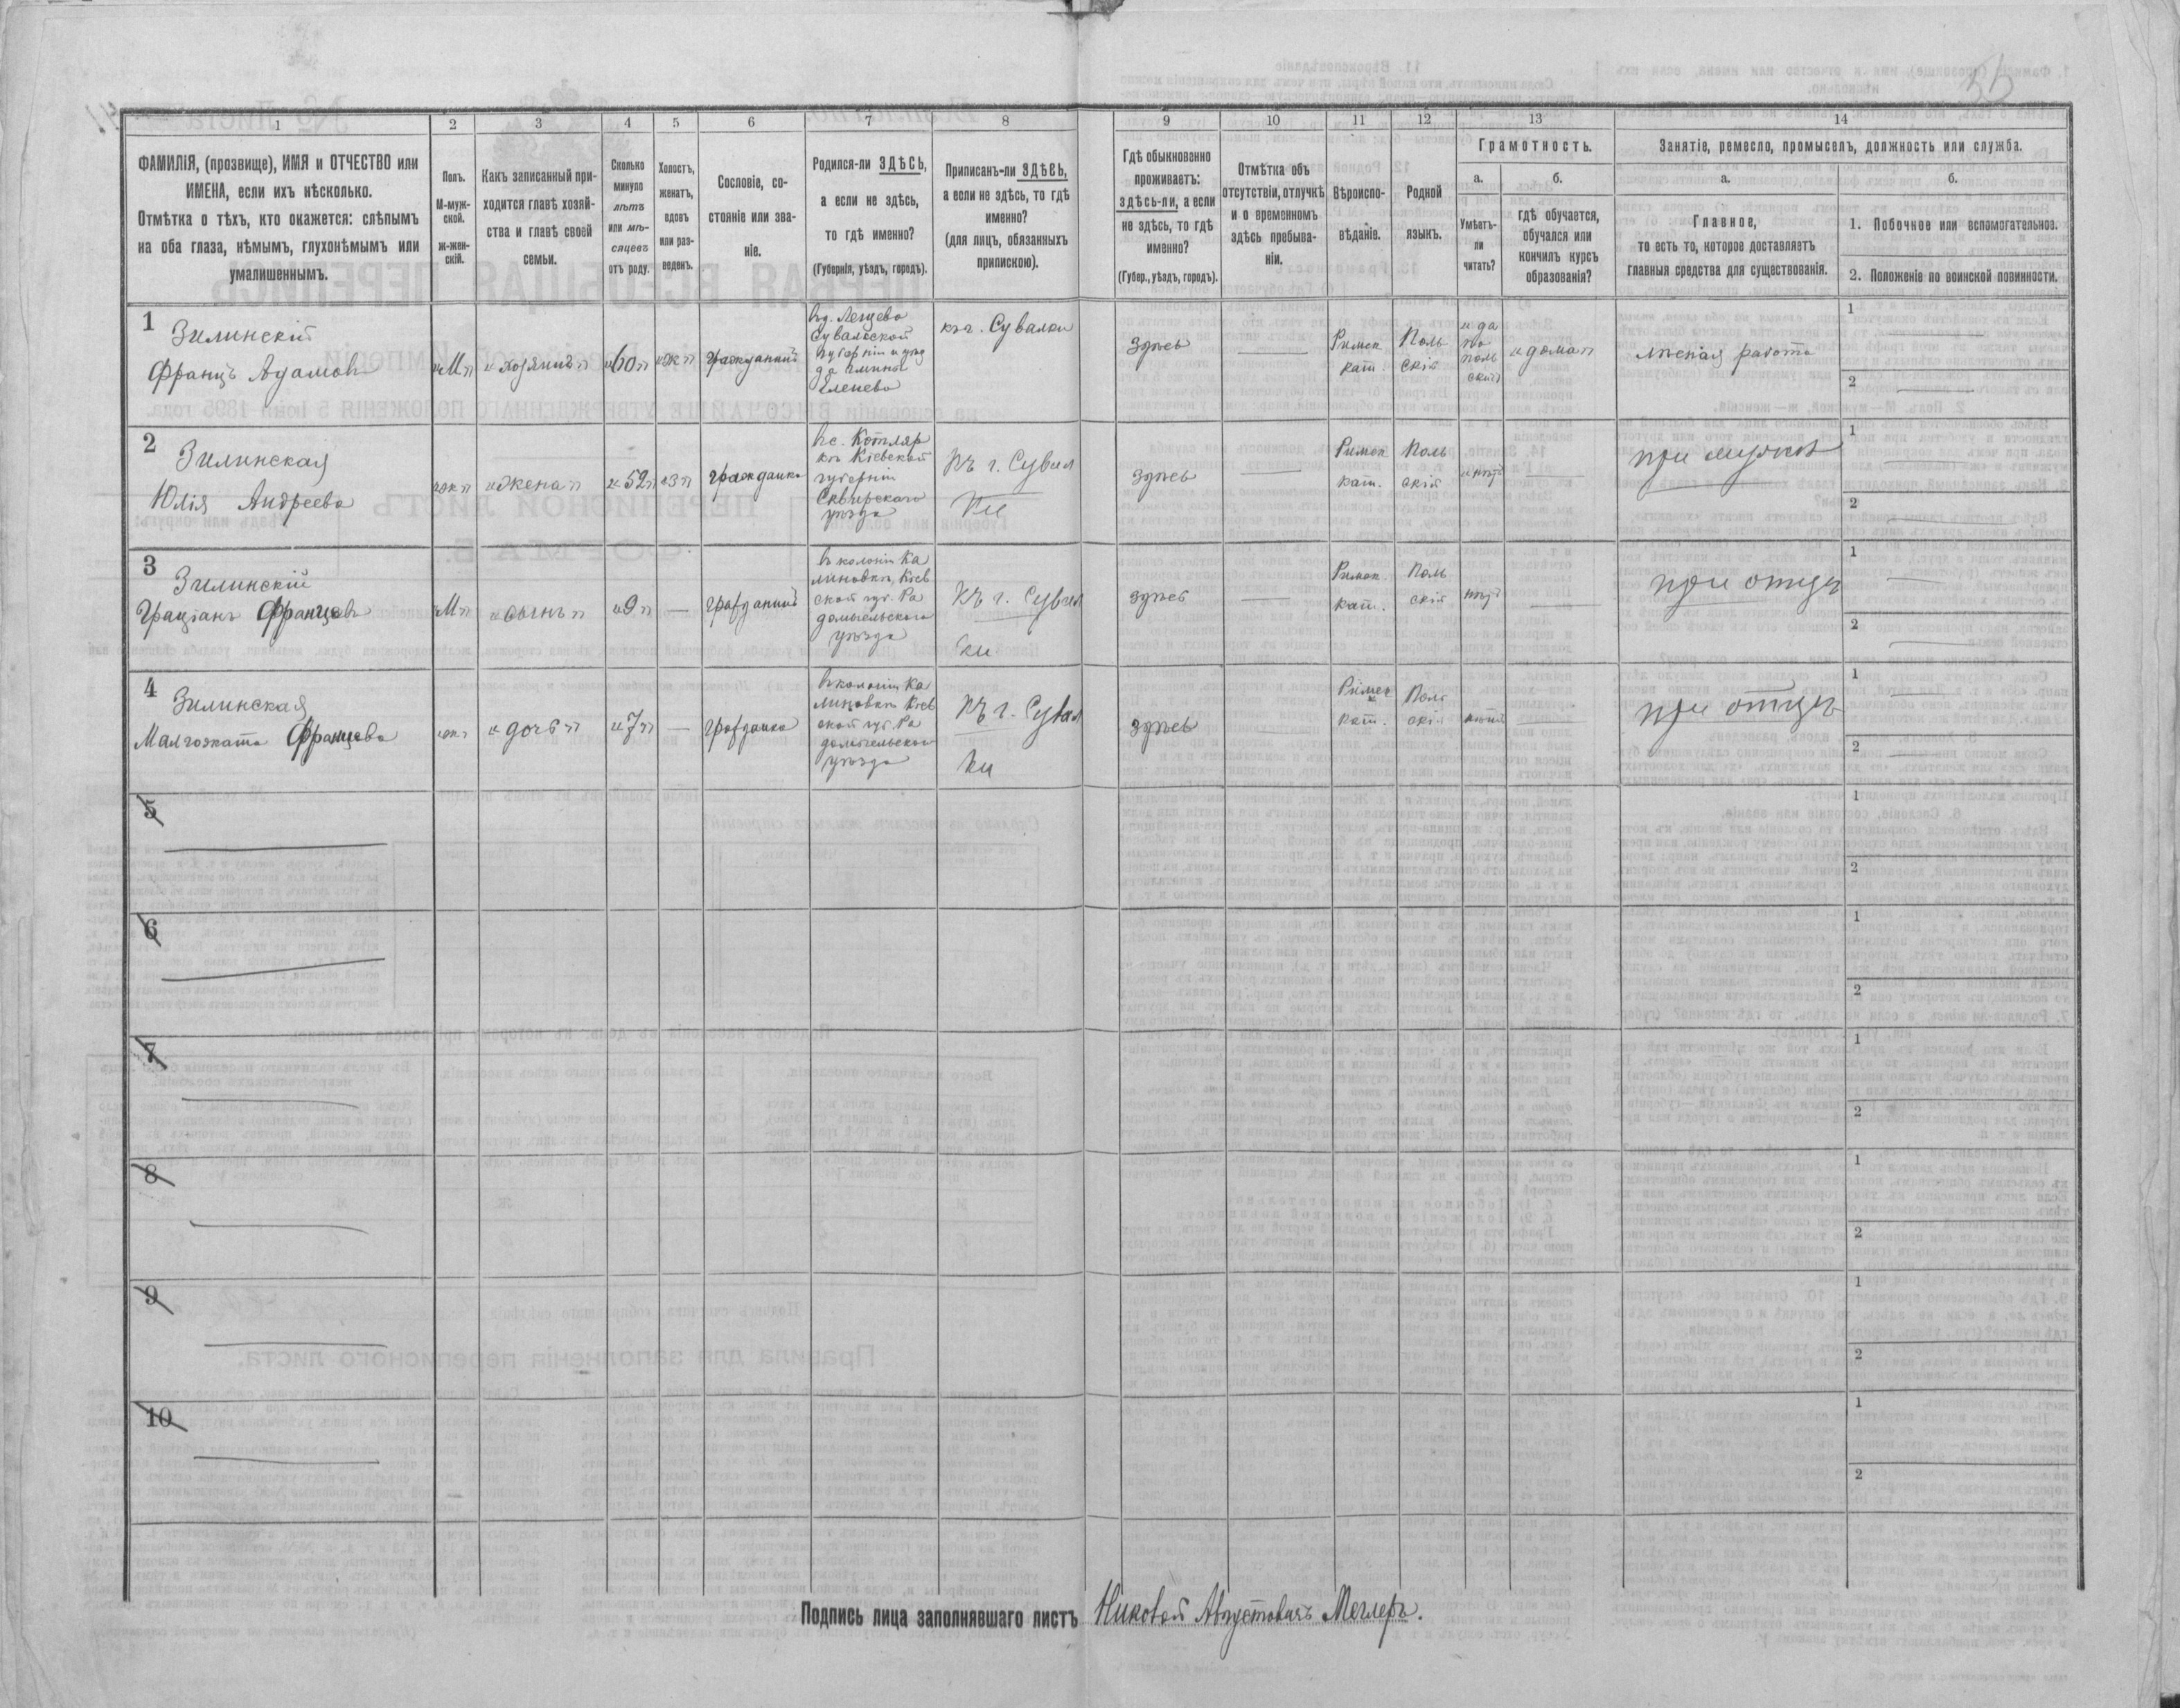 1
2
3
4
5
6
7
8
9
10
11
12
13
14
ФАМИЛІЯ, (прозвище), ИМЯ и ОТЧЕСТВО или
ИМЕНА, если ихъ нѣсколько.
Отмѣтка о тѣхъ, кто окажется: слѣпымъ
на оба глаза, нѣмымъ, глухонѣмымъ или
умалишеннымъ.
Полъ.
М-муж-
ской.
ж-жен-
скій.
Какъ записанный при-
ходится главѣ хозяй-
ства и главѣ своей
семьи.
Сколько
минуло
лѣтъ
или мѣ-
сяцевъ
отъ роду.
Холостъ,
женатъ,
вдовъ
или раз-
веденъ.
Сословіе, со-
стояніе или зва-
ніе.
Родился-ли ЗДѢСЬ,
а если не здѣсь,
то гдѣ именно?
(Губернія, уѣздъ, городъ).
Приписанъ-ли ЗДѢСЬ,
а если не здѣсь, то гдѣ
именно?
(для лицъ, обязанныхъ
припискою).
Гдѣ обыкновенно
проживаетъ:
здѣсь-ли, а если
не здѣсь, то гдѣ
именно?
(Губер., уѣздъ, городъ).
Отмѣтка объ
отсутствіи, отлучкѣ
и о временномъ
здѣсь пребыва-
ніи.
Вѣроиспо-
вѣданіе.
Родной
языкъ.
Грамотность.
а.
Умѣетъ-
ли
читать?
б.
гдѣ обучается,
обучался или
кончилъ курсъ
образованія?
Занятіе, ремесло, промыселъ, должность или служба.
а.
Главное,
то есть то, которое доставляетъ
главныя средства для существованія.
б.
1. Побочное или вспомогательное.
2. Положеніе по воинской повинности.
1
Зилинскій
Францъ Адамовъ
"М"
"хозяинъ"
"60"
"ж"
гражданинъ
Сувалкской
губерніи и уѣз
да гмины
Еленево
къ г. Сувалки
здѣсь
Римск
кат.
Поль
скій
"да
по
поль
ски"
"дома"
лѣсная работа
1
2
2
Зилинская
Юлія Андреева
"ж"
"жена"
"52"
"з"
гражданка
въ с. Котляр
къ Кіевской
губерніи
Сквирскаго
уѣзда
Къ г. Сувал
ки
здѣсь
Римск
кат.
Поль
скій
"нѣтъ
при мужѣ
1
2
3
Зилинскій
Граціанъ Францевъ
"М"
"сынъ"
"9"
гражданинъ
въ колоніи Ка
линовкѣ, Кіев
ской губ. Ра
домысльскаго
уѣзда
Къ г. Сувал
ки
здѣсь
Римск
кат.
Поль
скій
нѣтъ
при отцѣ
1
2
4
Зилинская
Малгожата Францева
"ж"
"дочь"
"7"
гражданка
въ колоніи Ка
линовкѣ Кіев
ской губ. Ра
домысльскаго
уѣзда
Къ г. Сувал
ки
здѣсь
Римск
кат.
Поль
скій
нѣтъ
при отцѣ
1
2
5
1
2
6
1
2
7
1
2
8
1
2
9
1
2
10
1
2
Подпись лица заполнявшаго листъ Августовичъ Меглеръ.